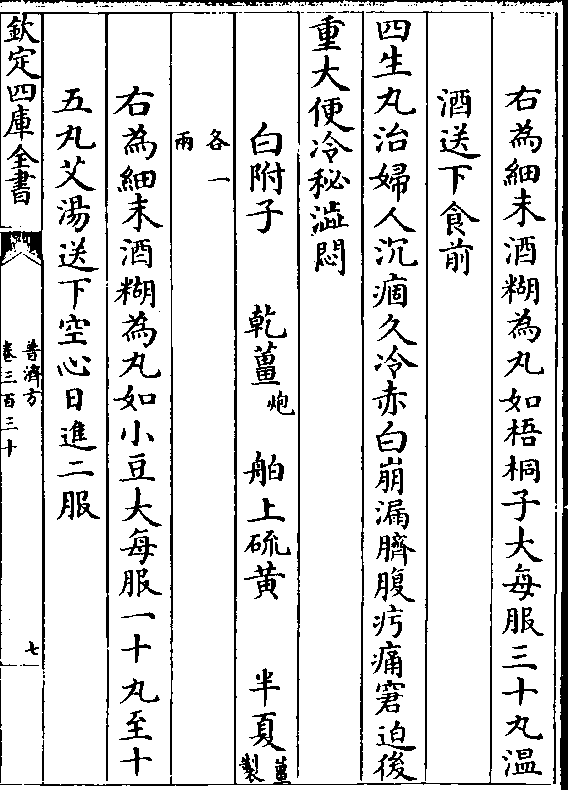 右為細末酒糊為丸如梧桐子大每服三十丸温
酒送下食前
四生丸治婦人沉痼久冷赤白崩漏臍腹疞痛窘迫後
重大便冷秘澁悶
白附子 乾薑炮 舶上硫黄 半夏薑製
各一兩
右為細末酒糊為丸如小豆大每服一十丸至十
五丸艾湯送下空心日進二服
欽定四庫全書
普濟方
卷三百三十
七